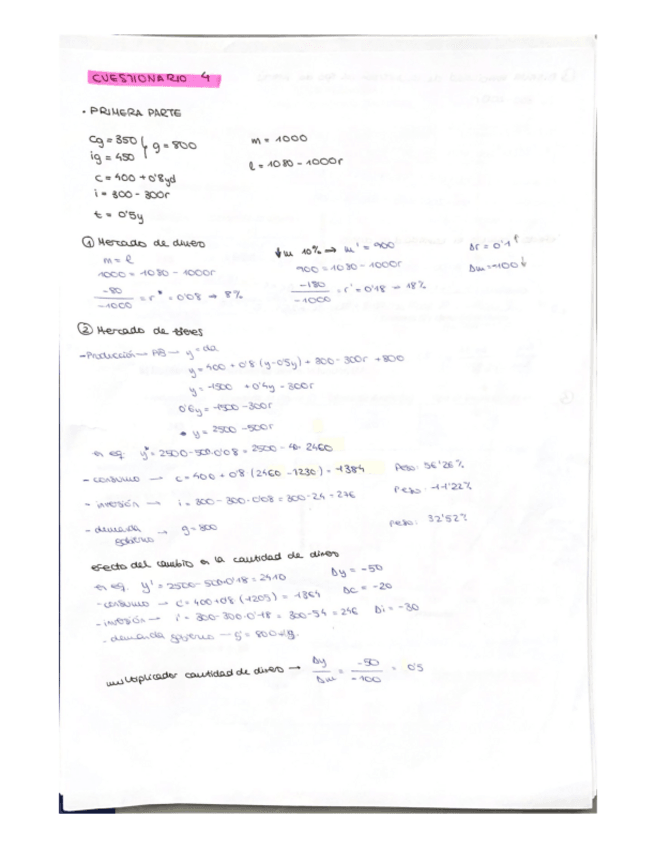 CUESTIONARIO 4
• PRIMERA PARTE
cg = 350
ig = 450
g = 800
m = 1000
c = 400 + 0'8yd
l = 1080 - 1000r
i = 300 - 300r
t = 0'5y
① Mercado de dinero
m = l
1000 = 1080 - 1000r
-80 / -1000 = r* = 0'08 → 8%
↓m 10% → m' = 900
900 = 1080 - 1000r
-180 / -1000 = r' = 0'18 → 18%
Δr = 0'1↑
Δm = -100↓
② Mercado de bienes
- Producción → PIB → y = da
y = 400 + 0'8 (y - 0'5y) + 300 - 300r + 800
y = 1500 + 0'4y - 300r
0'6y = 1500 - 300r
• y = 2500 - 500r
en eq. y* = 2500 - 500·0'08 = 2500 - 40 = 2460
- consumo → c = 400 + 0'8 (2460 - 1230) = 1384 Peso: 56'26%
- inversión → i = 300 - 300·0'08 = 300 - 24 = 276 Peso: 11'22%
- demanda gobierno → g = 800 peso: 32'52%
efecto del cambio en la cantidad de dinero
en eq. y' = 2500 - 500·0'18 = 2410 Δy = -50
- consumo → c' = 400 + 0'8 (1205) = 1364 Δc = -20
- inversión → i' = 300 - 300·0'18 = 300 - 54 = 246 Δi = -30
- demanda gobierno →
multiplicador cantidad de dinero → Δy / Δm = -50 / -100 = 0'5